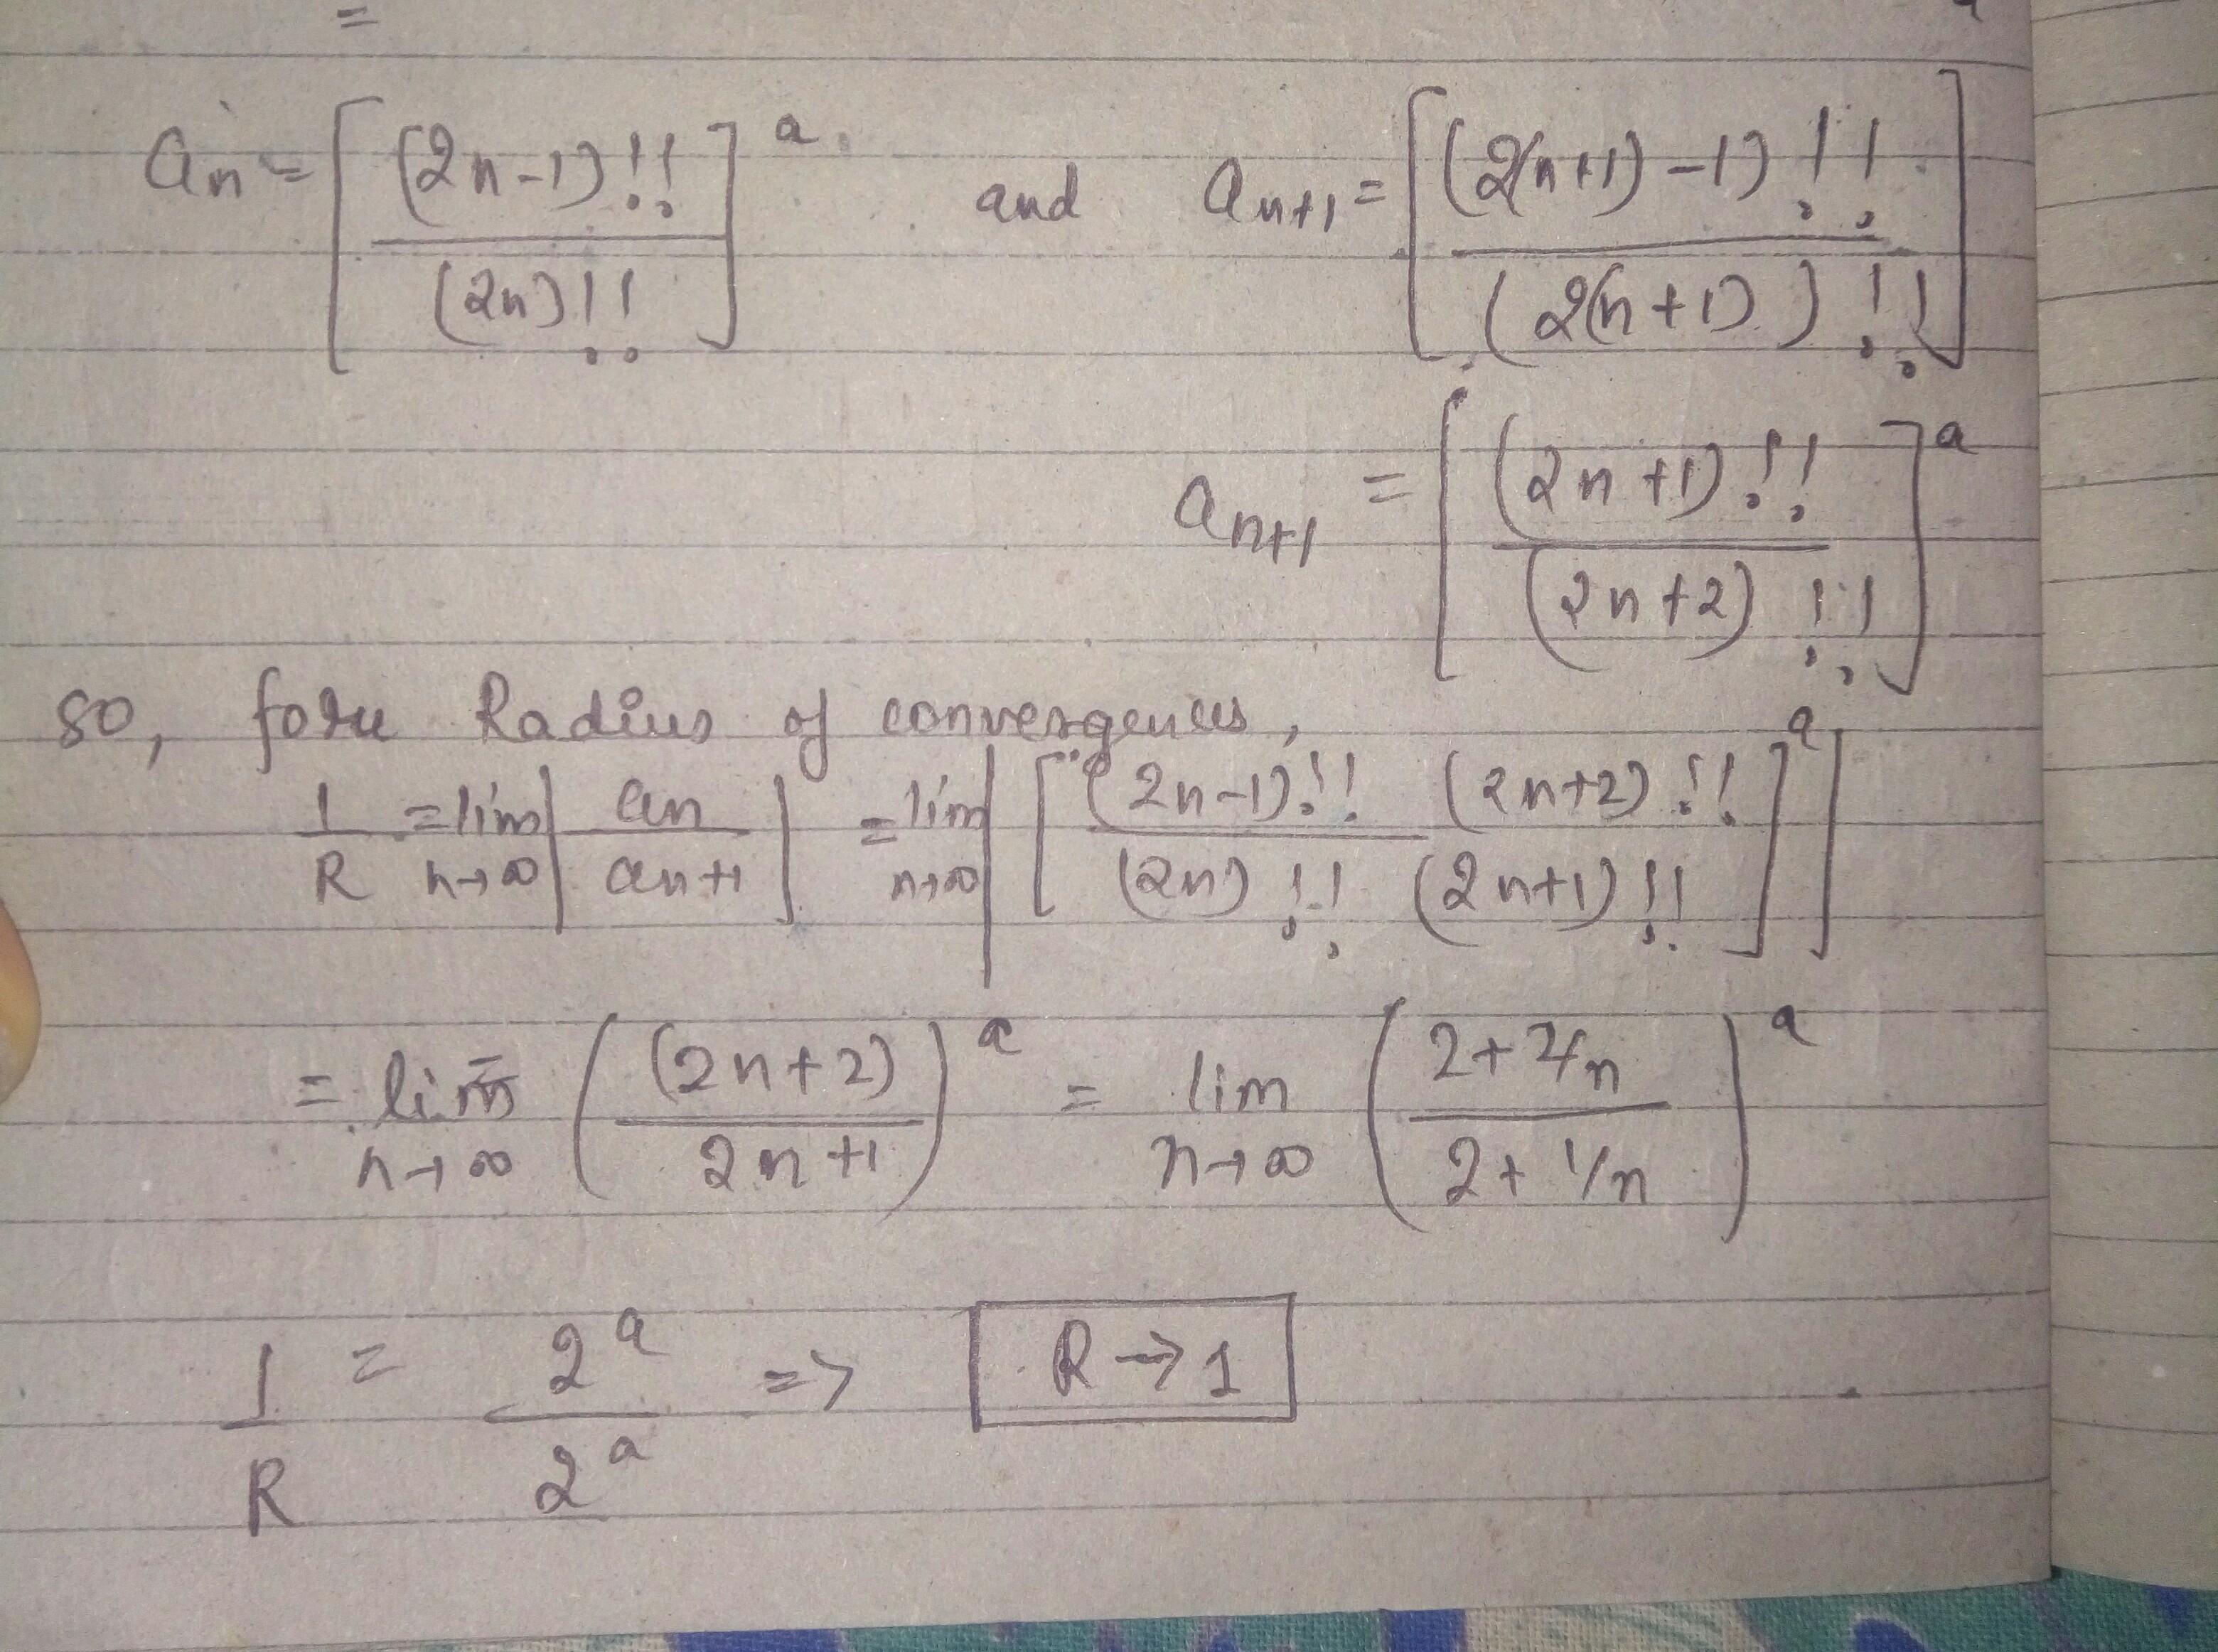 =
aₙ = [ (2n-1)!! / (2n)!! ]ᵃ and aₙ₊₁ = [ (2(n+1)-1)!! / (2(n+1))!! ]
aₙ₊₁ = [ (2n+1)!! / (2n+2)!! ]ᵃ
so, foru Radius of convergences,
1/R = lim n→∞ | an / an+1 | = lim n→∞ | [ (2n-1)!! (2n+2)!! / (2n)!! (2n+1)!! ]ᵃ |
= lim n→∞ ( (2n+2) / 2n+1 )ᵃ = lim n→∞ ( 2+2/n / 2+1/n )ᵃ
1/R = 2ᵃ / 2ᵃ => R → 1